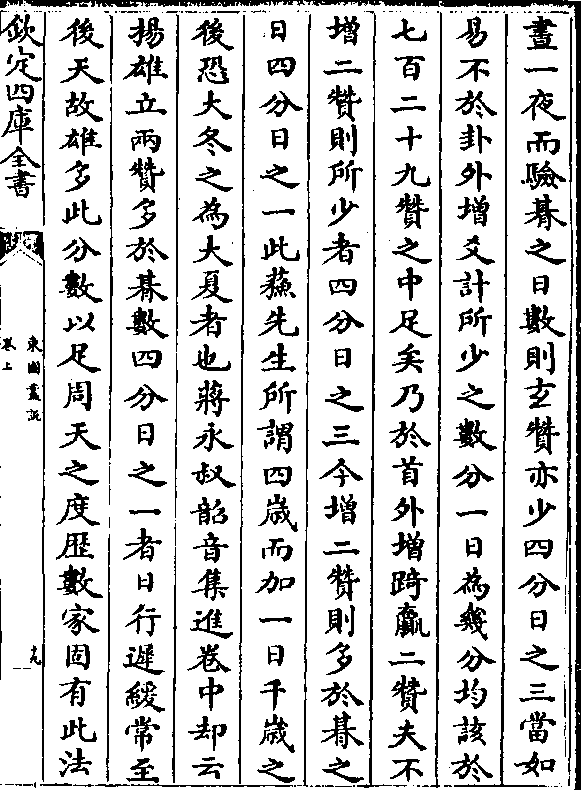 晝一夜而驗朞之日數則𤣥贊亦少四分日之三當如
易不於卦外增爻計所少之數分一日為幾分均該於
七百二十九贊之中足矣乃於首外增踦贏二贊夫不
增二贊則所少者四分日之三今增二贊則多於朞之
日四分日之一此蘇先生所謂四歳而加一日千歳之
後恐大冬之為大夏者也蔣永叔韶音集進卷中却云
揚雄立兩贊多於朞數四分日之一者日行遲緩常至
後天故雄多此分數以足周天之度歴數家固有此法
欽定四庫全書
東園叢說
卷上